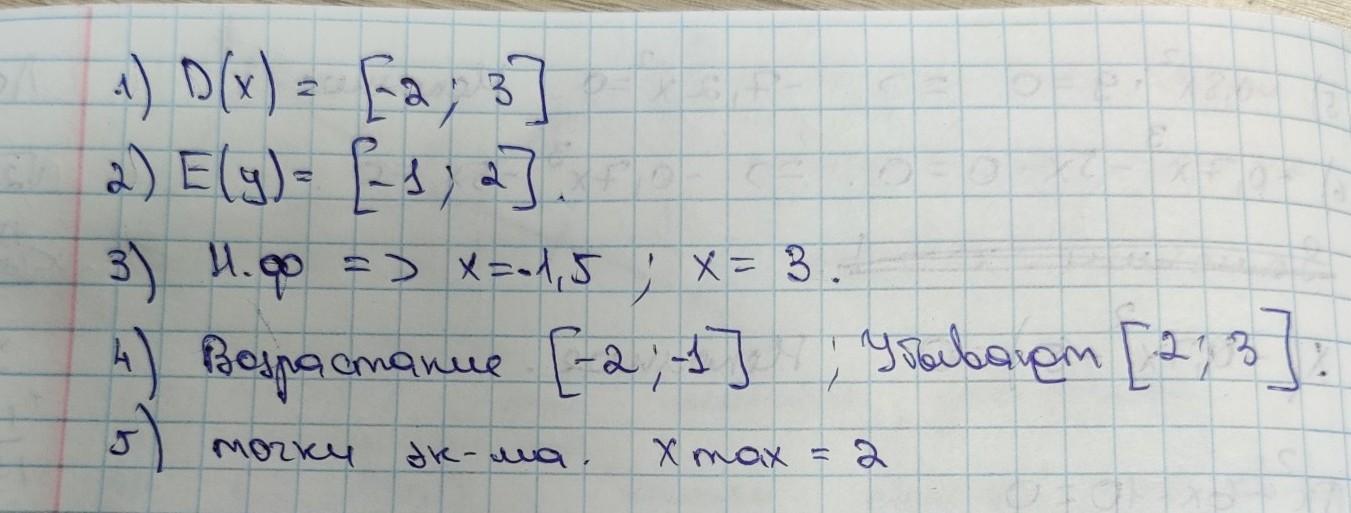 1) D(x) = [-2; 3]
2) E(y) = [-1; 2].
3) Н.ф => x=-1,5 ; x = 3.
4) Возрастание [-2;-1] ; Убывает [2; 3].
5) точки эк-ма. x max = 2